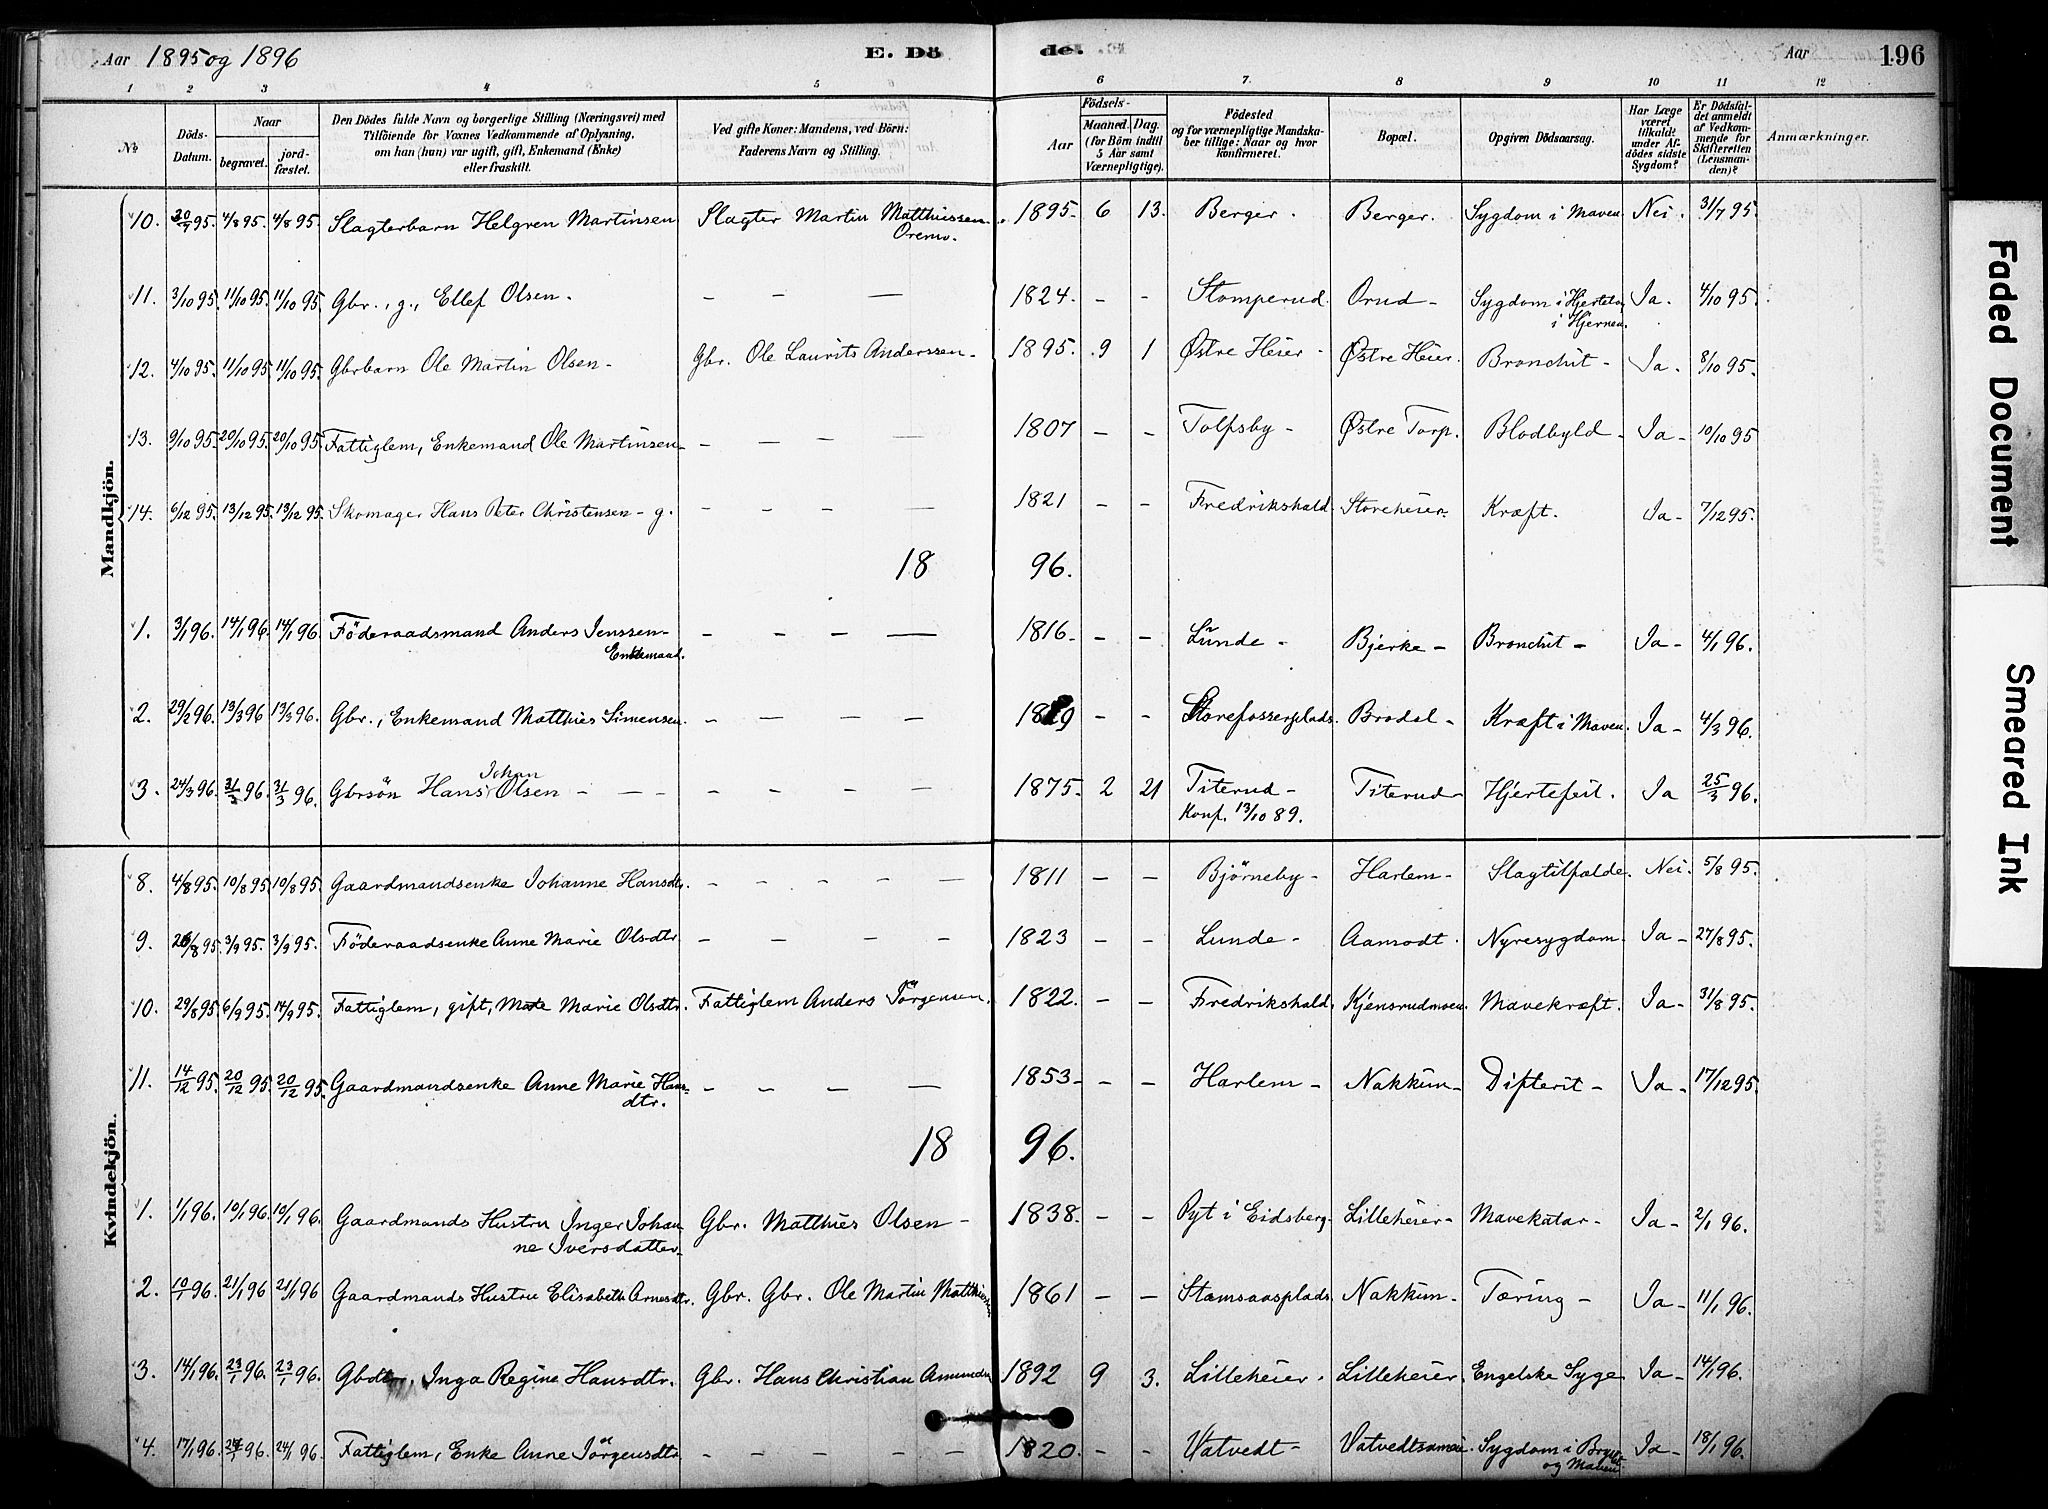 Aar 1895 og 1896 E. Dö de. Aar 196
1 2 3 4 5 6 7. 8 9 10 11 12
No Döds-Datum. Naar begravet. jordfæstet. Den Dödes fulde Navn og borgerlige Stilling (Næringsvei) med Tilföiende for Voxnes Vedkommende af Oplysning, om han (hun) var ugift, gift, Enkemand (Enke) eller fraskilt. Ved gifte Koner: Mandens, ved Börn: Faderens Navn og Stilling. Aar Födsels- Maaned. Dag. (for Börn indtil 5 Aar samt Værnepligtige). Födested og for værnepligtige Mandskaber tillige: Naar og hvor konfirmeret. Bopæl. Opgiven Dödsaarsag. Har Læge været tilkaldt under Afdödes sidste Sygdom? Er Dödsfaldet anmeldt af Vedkommende for Skifteretten (Lensmanden)? Anmærkninger.
Mandkjön.
10. 30/7 95. 4/8 95. 4/8 95. Slagterbarn Helgren Martinsen Slagter Martin Matthiessen Oremo. 1895. 6 13. Berger. Berger. Sygdom i Maven Nei. 31/7 95.
11. 3/10 95. 11/10 95. 11/10 95. Gbr., g., Ellef Olsen. — — — 1824. - - Stomperud. Orud - Sygdom i Hjertet og i Hjernen. Ja. 4/10 95.
12. 4/10 95. 11/10 95. 11/10 95. Gbrbarn Ole Martin Olsen - Gbr. Ole Laurits Anderssen - 1895. 9 1 Østre Heier - Østre Heier. Bronchit - Ja - 8/10 95.
13. 9/10 95. 20/10 95. 20/10 95. Fattiglem, Enkemand Ole Martinsen - — — — — 1807 - - Tolfsby - Østre Torp. Blodbyld - Ja - 10/10 95
14. 6/12 95. 13/12 95. 13/12 95. Skomager Hans Peter Christensen - g. - - - - 1821 - - Fredrikshald. Storeheier. Kræft. Ja - 7/12 95.
18 96.
1. 3/1 96. 14/1 96. 14/1 96. Föderaadsmand Anders Jenssen - Enkemand. - - - — 1816 - - - Lunde - Bjerke - Bronchit - Ja - 4/1 96.
2. 29/2 96. 13/3 96 13/3 96. Gbr., Enkemand Matthies Simensen. - — — — - - Storefosserplads. Brodal - Kræft i Maven. Ja - 4/3 96.
3. 24/3 96. 31/3 96. 31/3 96. Gbrsön Hans Johan Olsen - — — - - - - 1875. 2 21 Titerud - Konf. 13/10 89. Titerud - Hjertefeil. Ja 25/3 96.
Kvindekjön.
8. 4/8 95. 10/8 95. 10/8 95. Gaardmandsenke Johanne Hansdtr. - - - - - 1811 - - Bjørneby - Harlem - Slagtilfælde. Nei. 5/8 95.
9. 26/8 95. 3/9 95. 3/9 95. Föderaadsenke Anne Marie Olsdtr. - - - - 1823 - - Lunde - Aamodt. Nyresygdom. Ja - 27/8 95.
10. 29/8 95. 6/9 95. 14/9 95. Fattiglem, gift, Marie Olsdtr. Fattiglem Anders Jörgensen. 1822. - - Fredrikshald. Kjensrudmoen. Mavekræft. Ja - 31/8 95.
11. 14/12 95. 20/12 95. 20/12 95. Gaardmandsenke Anne Marie Hans- dtr. - — — — 1853 - - - Harlem - Nakkim - Difterit - Ja - 17/12 95.
18 96.
1. 1/1 96. 10/1 96. 10/1 96. Gaardmands Hustru Inger Johan ne Iversdatter - Gbr. Matthies Olsen - 1838. - - Pyt i Eidsberg. Lilleheier - Mavekatar - Ja - 2/1 96.
2. 10/1 96. 21/1 96 21/1 96 Gaardmands Hustru Elisabeth Arnesdtr. Gbr. Gbr. Ole Martin Matthiesen 1861 - - Stamsaasplads. Nakkim - Tæring - Ja - 11/1 96.
3. 14/1 96. 23/1 96. 23/1 96. Inga Regine Hansdtr. Gbr. Hans Christian Amundsen 1892 9 3. Lilleheier. Lilleheier. Engelske Syge Ja - 14/1 96.
4. 17/1 96. 24/1 96. 24/1 96 Fattiglem, Enke Anne Jörgensdtr. - - - - - 1820. - - Vatvedt - Sygdom i Bryst og Maven Ja - 18/1 96.
Faded Document
Smeared Ink